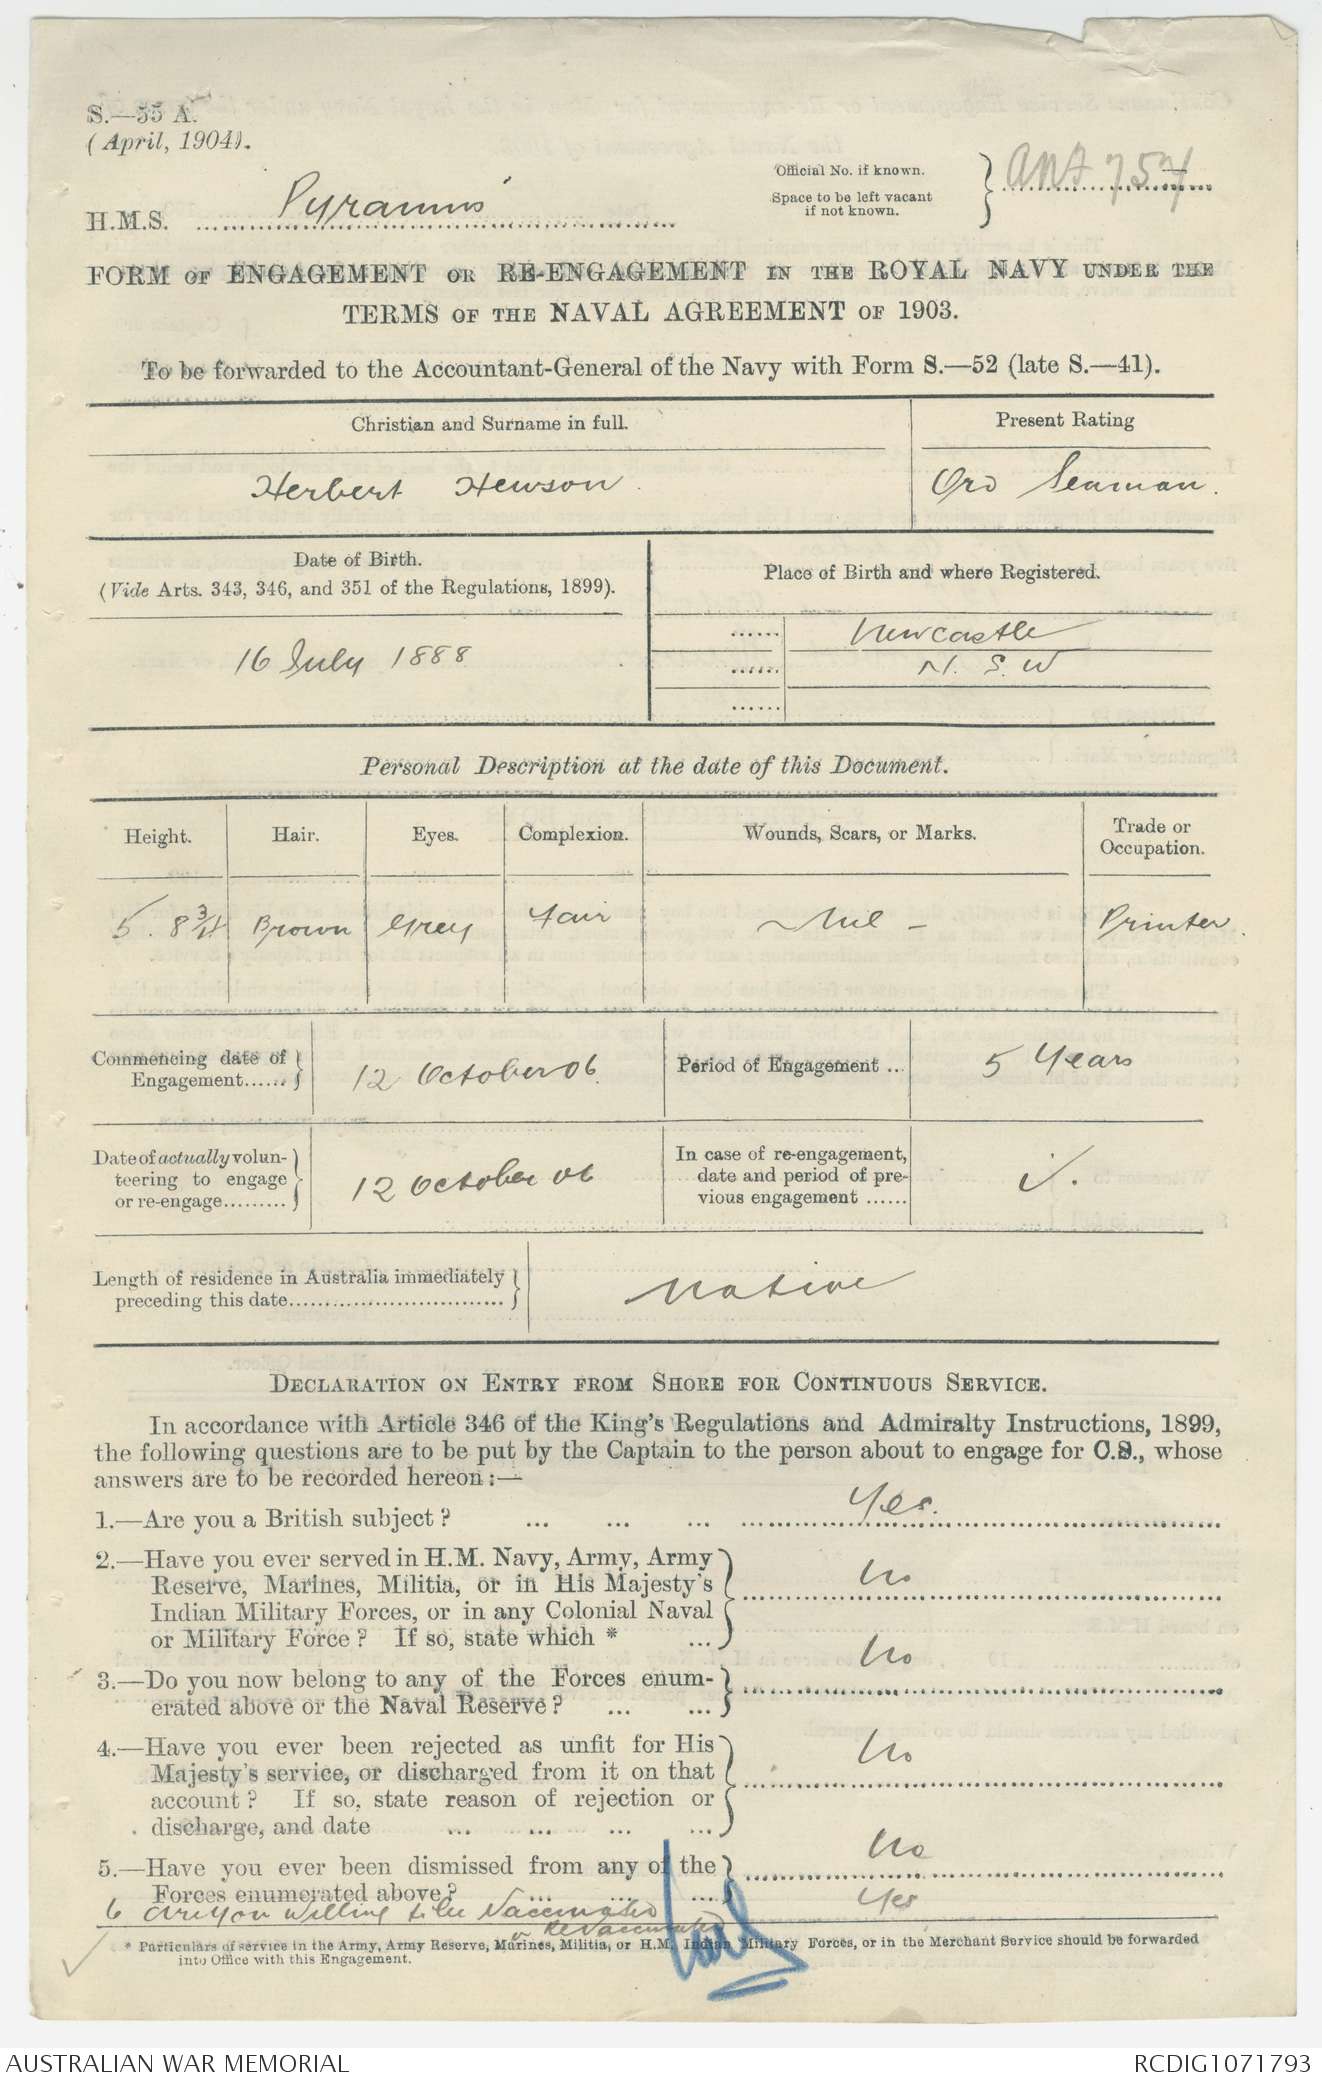 S.—55 A.
(April, 1904).
Official No. if known.
Space to be left vacant
if not known.
ANF 757
H.M.S. Pyramus
FORM OF ENGAGEMENT OR RE-ENGAGEMENT IN THE ROYAL NAVY UNDER THE
TERMS OF THE NAVAL AGREEMENT OF 1903.
To be forwarded to the Accountant-General of the Navy with Form S.—52 (late S.—41).
Christian and Surname in full.
Present Rating
Herbert Hewson.
Ord Seaman.
Date of Birth.
(Vide Arts. 343, 346, and 351 of the Regulations, 1899).
Place of Birth and where Registered.
16 July 1888
Newcastle
N. S. W
Personal Description at the date of this Document.
Height.
Hair.
Eyes.
Complexion.
Wounds, Scars, or Marks.
Trade or
Occupation.
5. 8 3/4
Brown
Grey
Fair
Nil –
Printer.
Commencing date of
Engagement......
12 October 06.
Period of Engagement ..
5 Years
Date of actually volun-
teering to engage
or re-engage.........
12 October 06
In case of re-engagement,
date and period of pre-
vious engagement ......
Length of residence in Australia immediately
preceding this date..............................
Native
DECLARATION ON ENTRY FROM SHORE FOR CONTINUOUS SERVICE.
In accordance with Article 346 of the King's Regulations and Admiralty Instructions, 1899,
the following questions are to be put by the Captain to the person about to engage for C.S., whose
answers are to be recorded hereon:—
1.—Are you a British subject? ... ... ... Yes.
2.—Have you ever served in H.M. Navy, Army, Army
Reserve, Marines, Militia, or in His Majesty's
Indian Military Forces, or in any Colonial Naval
or Military Force? If so, state which * ...
No
3.—Do you now belong to any of the Forces enum-
erated above or the Naval Reserve? ... ...
No
4.—Have you ever been rejected as unfit for His
Majesty's service, or discharged from it on that
account? If so, state reason of rejection or
discharge, and date ... ... ... ...
No
5.—Have you ever been dismissed from any of the
Forces enumerated above? ... ... ...
No
6 Are you willing to be Vaccinated
or ReVaccinated
Yes
* Particulars of service in the Army, Army Reserve, Marines, Militia, or H.M. Indian Military Forces, or in the Merchant Service should be forwarded
into Office with this Engagement.
AUSTRALIAN WAR MEMORIAL
RCDIG1071793